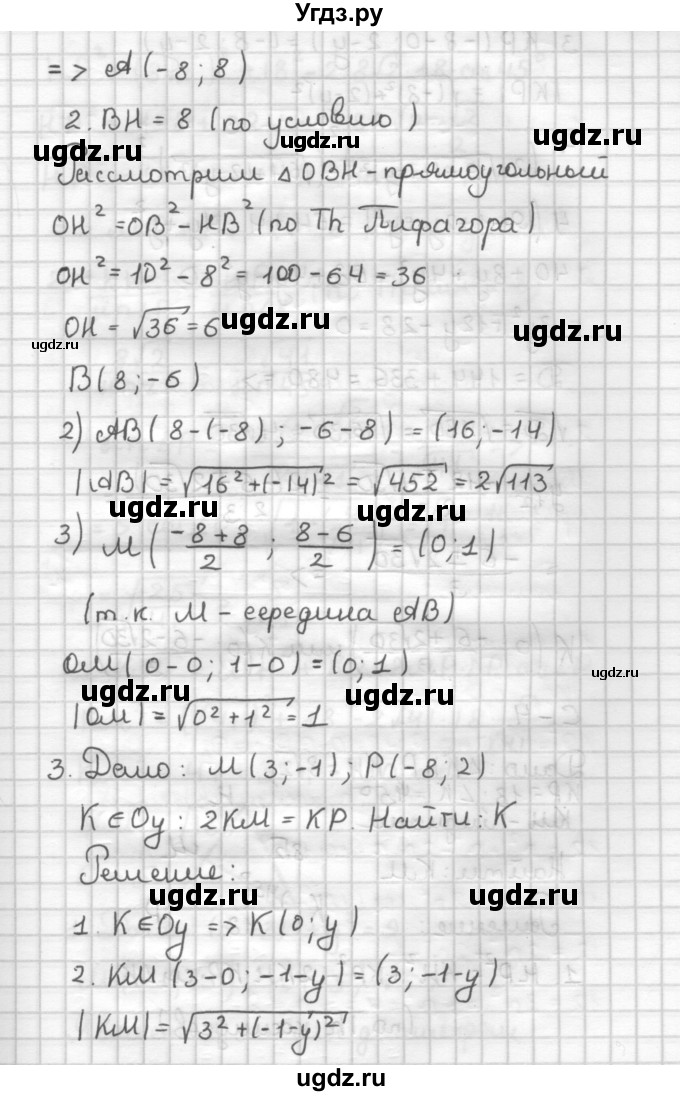 Угдз.ру
=> A(-8; 8)
2. BH = 8 (по условию)
ugdz.ru ugdz.ru ugdz.ru
Рассмотрим △ OBH - прямоугольный
OH² = OB² - HB² (по Th Пифагора)
OH² = 10² - 8² = 100 - 64 = 36
OH = √36 = 6
ugdz.ru ugdz.ru ugdz.ru
B(8; -6)
2) AB(8-(-8); -6-8) = (16; -14)
|AB| = √16²+(-14)² = √452 = 2√113
ugdz.ru ugdz.ru ugdz.ru
3) M(-8+8/2; 8-6/2) = (0; 1)
(т.к. M - середина AB)
OM(0-0; 1-0) = (0; 1)
ugdz.ru ugdz.ru ugdz.ru
|OM| = √0²+1² = 1
3. Дано: M(3; -1); P(-8; 2)
K∈Oy: 2KM = KP. Найти: K
Решение:
ugdz.ru ugdz.ru
1. K∈Oy => K(0; y)
2. KM(3-0; -1-y) = (3; -1-y)
|KM| = √3²+(-1-y)²
ugdz.ru ugdz.ru
ugdz.ru